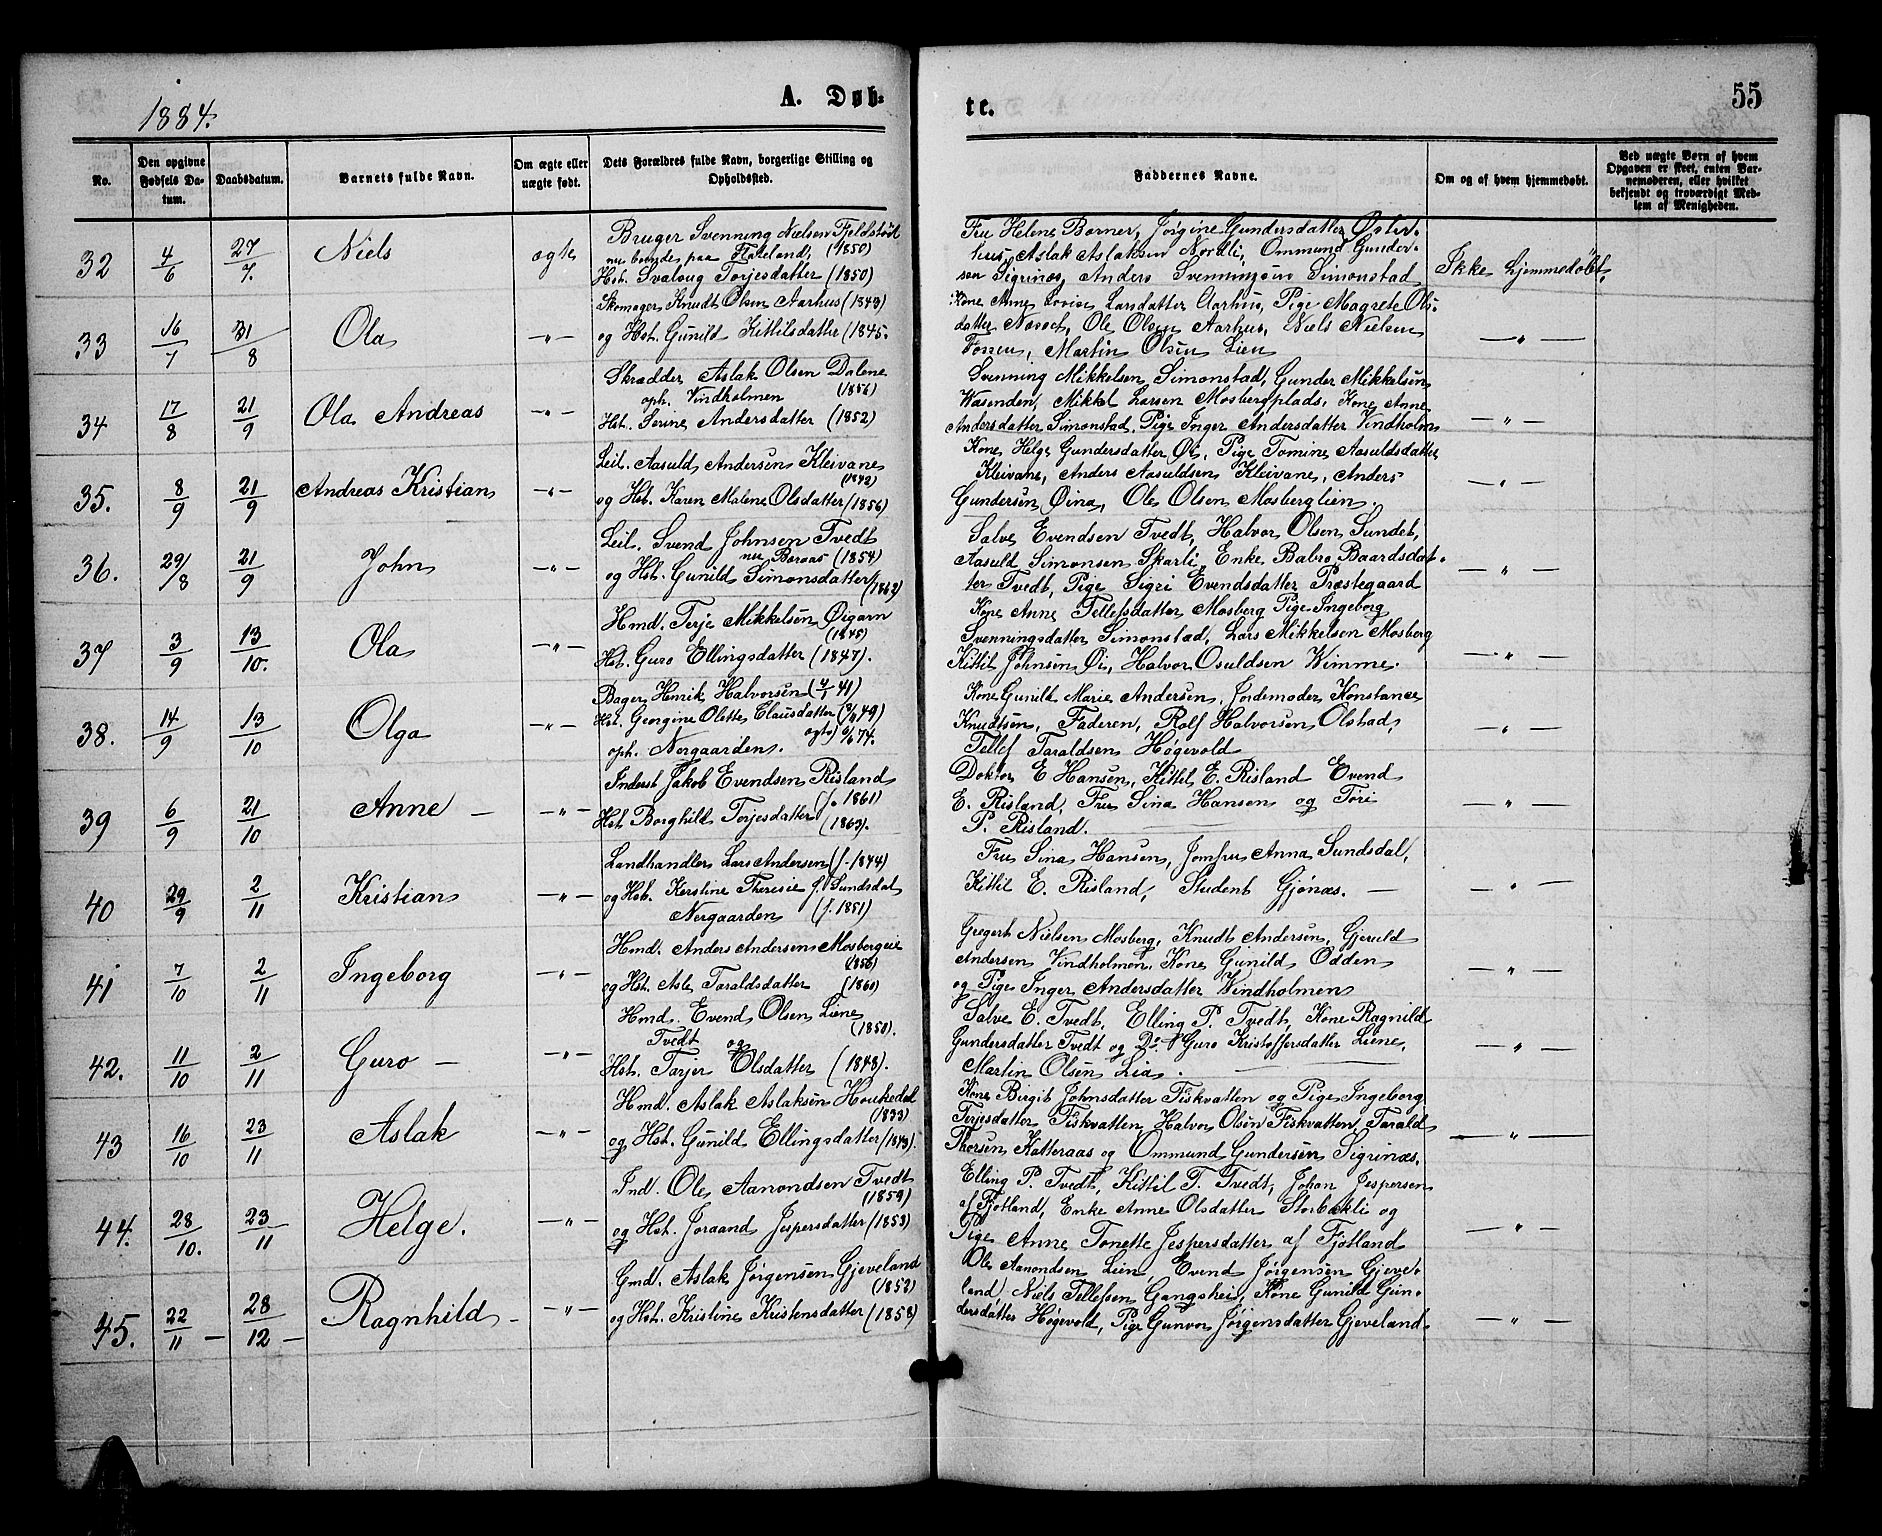 1884.
A. Døb-
te.
55
No.
Den opgivne Fødsels Datum.
Daabsdatum.
Barnets fulde Navn.
Om ægte eller uægte født.
Dets Forældres fulde Navn, borgerlige Stilling og Opholdssted.
Faddernes Navne.
Om og af hvem hjemmedøbt.
Ved uægte Børn af hvem Opgaven er skeet, enten Barnemoderen, eller hvilket bekjendt og troværdigt Medlem af Menigheden.
32 4/6 27/7. Niels ægte
Bruger Svenning Nielsen Fjeldstød
nu boende paa Flateland, (1850)
Hst. Svaloug Torjesdatter (1850)
Fru Helene Borner, Jørgine Gundersdatter Øster-
hus, Aslak Aslaksen Nordli, Ommund Gunder-
sen Sigrinæs, Anders Svenningsen Simonstad
Ikke hjemmedøbt.
33 16/7 31/8 Ola -"-
Skomager Knudt Olsen Aarhus (1843)
og Hst. Gunild Kittilsdatter (1845.
Kone Anne Lovise Larsdatter Aarhus, Pige Magrete Ols-
datter Næset, Ole Olsen Aarhus, Niels Nielsen
Fossen, Martin Olsen Lien
-"-
34 17/8 21/9 Ola Andreas -"-
Skrædder Aslak Olsen Dalene
oph. Vindholmen (1856)
Hst. Serine Andersdatter (1852)
Svenning Mikkelsen Simonstad, Gunder Mikkelsen
Wasenden, Mikkel Larsen Mosbergplads, Kone Anne
Andersdatter Simonstad, Pige Inger Andersdatter Vindholm
-"-
35. 8/9 21/9 Andreas Kristian -"-
Leil. Aasuld Andersen Kleivane
(1842)
og Hst. Karen Malene Olsdatter (1856)
Kone Helge Gundersdatter Øi, Pige Tomine Aasuldsdatter
Kleivane, Anders Aasuldsen Kleivane, Anders
Gundersen Øina, Ole Olsen Mosberglien.
-"-
36. 29/8 21/9 John -"-
Leil. Svend Johnsen Tvedt
nu Boraas (1854)
og Hst. Gunild Simonsdatter (1862)
Salve Evendsen Tvedt, Halvor Olsen Sundet,
Aasuld Simonsen Skarli, Enke Babro Baardsdat-
ter Tvedt, Pige Sigri Evendsdatter Præstegaard
-"-
37 3/9 13/10. Ola -"-
Hmd. Terje Mikkelsen Øigarn
(1845)
Hst. Guro Ellingsdatter (1847).
Kone Anne Tellefsdatter Mosberg Pige Ingeborg
Svenningsdatter Simonstad, Lars Mikkelsen Mosberg
Kittil Johnsen Øi, Halvor Osuldsen Wimme.
-"-
38. 14/9 13/10 Olga -"-
Bager Henrik Halvorsen (4/1 41)
Hst. Georgine Olette Clausdatter (9/8 49)
oph. Nergaarden. ægtv. 9/6 74.
Kone Gunild Marie Andersen, Jordemoder Konstance
Knudtsen, Faderen, Rolf Halvorsen Olstad,
Tellef Taraldsen Høgevold
-"-
39 6/9 21/10 Anne - -"-
Inderst Jakob Evendsen Risland
(f. 1861)
Hst Borghild Torjesdatter (1863).
Doktor E Hansen, Kittil E. Risland Evend
E. Risland, Fru Sina Hansen og Tori
P. Risland.
-"-
40 29/9 2/11 Kristian -"-
Landhandler Lars Andersen (f. 1844)
og Hst. Kerstine Theresie f. Sundsdal
Nergaarden (f. 1851)
Fru Sina Hansen, Jomfru Anna Sundsdal,
Kittil E. Risland, Student Gjønæs. -
-"-
41 7/10 2/11 Ingeborg -"-
Hmd. Anders Andersen Mosbergeie
(1856)
og Hst. Asle Taraldsdatter (1860)
Gregert Nielsen Mosberg, Knudt Andersen, Gjeruld
Andersen Vindholmen, Kone Gunild Odden
og Pige Inger Andersdatter Windholmen
-"-
42. 11/10 2/11 Guro - -"-
Hmd. Evend Olsen Liene
(1850).
Tvedt og
Hst. Tarjer Olsdatter (1848).
Salve E. Tvedt, Elling P. Tvedt, Kone Ragnild
Gundersdatter Tvedt og Do. Guro Kristoffersdatter Liene,
Martin Olsen Lia.
-"-
43 16/10 23/11 Aslak -"-
Hmd. Aslak Aslaksen Houkedal
(1833)
og Hst. Gunild Ellingsdatter (1843).
Kone Birgit Johnsdatter Fiskvatten og Pige Ingeborg
Terjesdatter Fiskvatten, Halvor Olsen Fiskvatten, Tarald
Thorsen Katteraas og Ommund Gundersen Sigrinæs.
-"-
44. 28/10. 23/11 Helge. -"-
Ind. Ole Aanondsen Tvedt
(1859)
og Hst. Joraand Jespersdatter (1853)
Elling P. Tvedt, Kittil T. Tvedt, Johan Jespersen
af Fjotland, Enke Anne Olsdatter Storbækli og
Pige Anne Tonette Jespersdatter af Fjotland
-"-
45. 22/11 - 28/12 - Ragnhild - -"-
Gmd. Aslak Jørgensen Gjeveland
(1852)
og Hst. Kristine Kristensdatter (1858)
Ole Aanondsen Lien, Evend Jørgensen Gjeve-
land, Niels Tellefsen Gangshei, Kone Gunild Gun-
dersdatter Høgevold, Pige Gunvor Jørgensdatter Gjeveland.
-"-